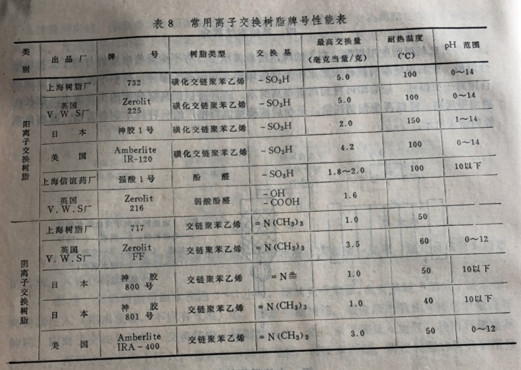 表8 常用离子交换树脂牌号性能表
类别 出品厂 牌号 树脂类型 交换基 最高交换量(毫克当量/克) 耐热温度(℃) pH 范围
阳离子交换树脂
上海树脂厂 732 磺化交链聚苯乙烯 -SO₃H 5.0 100 0~14
英国V.W.S厂 Zerolit 225 磺化交链聚苯乙烯 -SO₃H 5.0 100 0~14
日本 神胶1号 磺化交链聚苯乙烯 -SO₃H 2.0 150 1~14
美国 Amberlite IR-120 磺化交链聚苯乙烯 -SO₃H 4.2 100 0~14
上海信谊药厂 强酸1号 酚醛 -SO₃H 1.8~2.0 100 10以下
英国V.W.S厂 Zerolit 216 弱酸酚醛 -OH -COOH 1.6
阴离子交换树脂
上海树脂厂 717 交链聚苯乙烯 =N(CH₃)₃ 1.0 50
英国V.W.S厂 Zerolit FF 交链聚苯乙烯 =N(CH₃)₃ 3.5 60 0~12
日本 神胶800号 交链聚苯乙烯 =N 1.0 50 10以下
日本 神胶801号 交链聚苯乙烯 =N(CH₃)₃ 1.0 40 10以下
美国 Amberlite IRA-400 交链聚苯乙烯 =N(CH₃)₂ 3.0 50 0~12